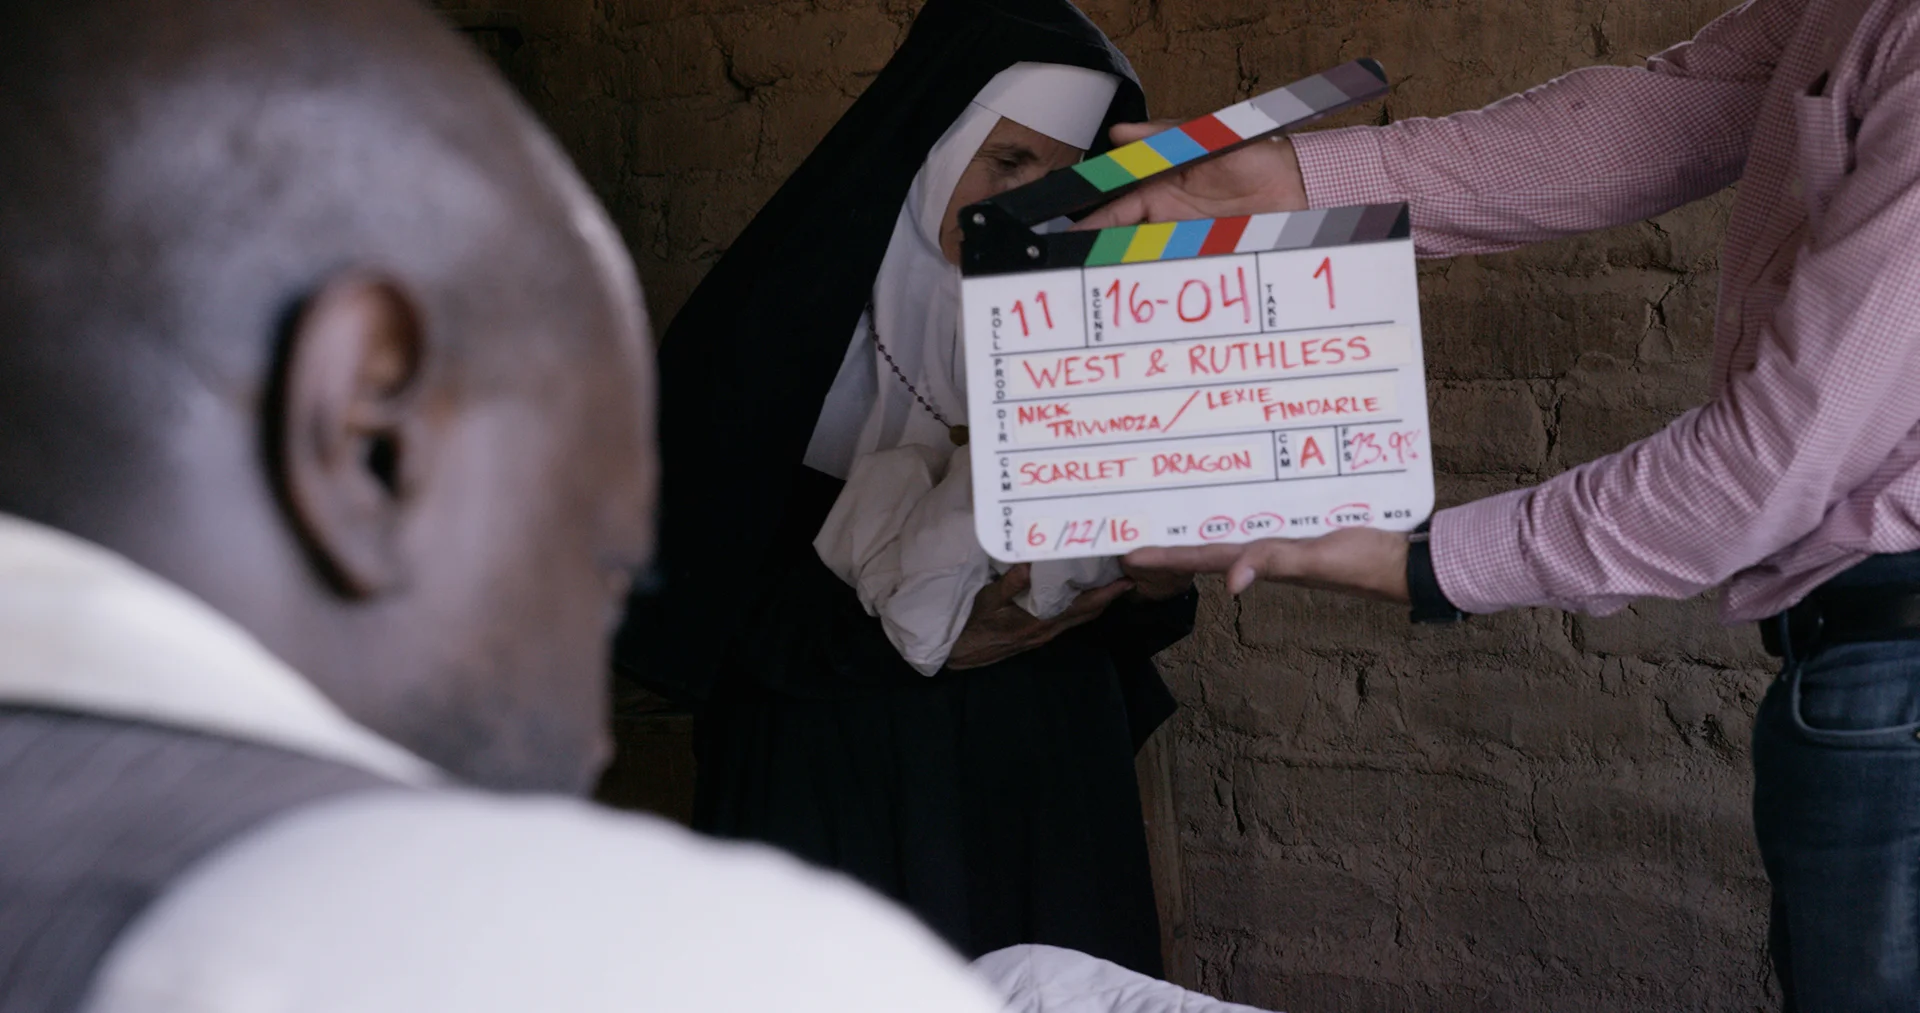 ROLL 11 SCENE 16-04 TAKE 1
PROD WEST & RUTHLESS
DIR NICK TRIVUNDZA / LEXIE FINDARLE
CAM SCARLET DRAGON CAM A FPS 23.98
DATE 6/22/16 INT EXT DAY NITE SYNC MOS